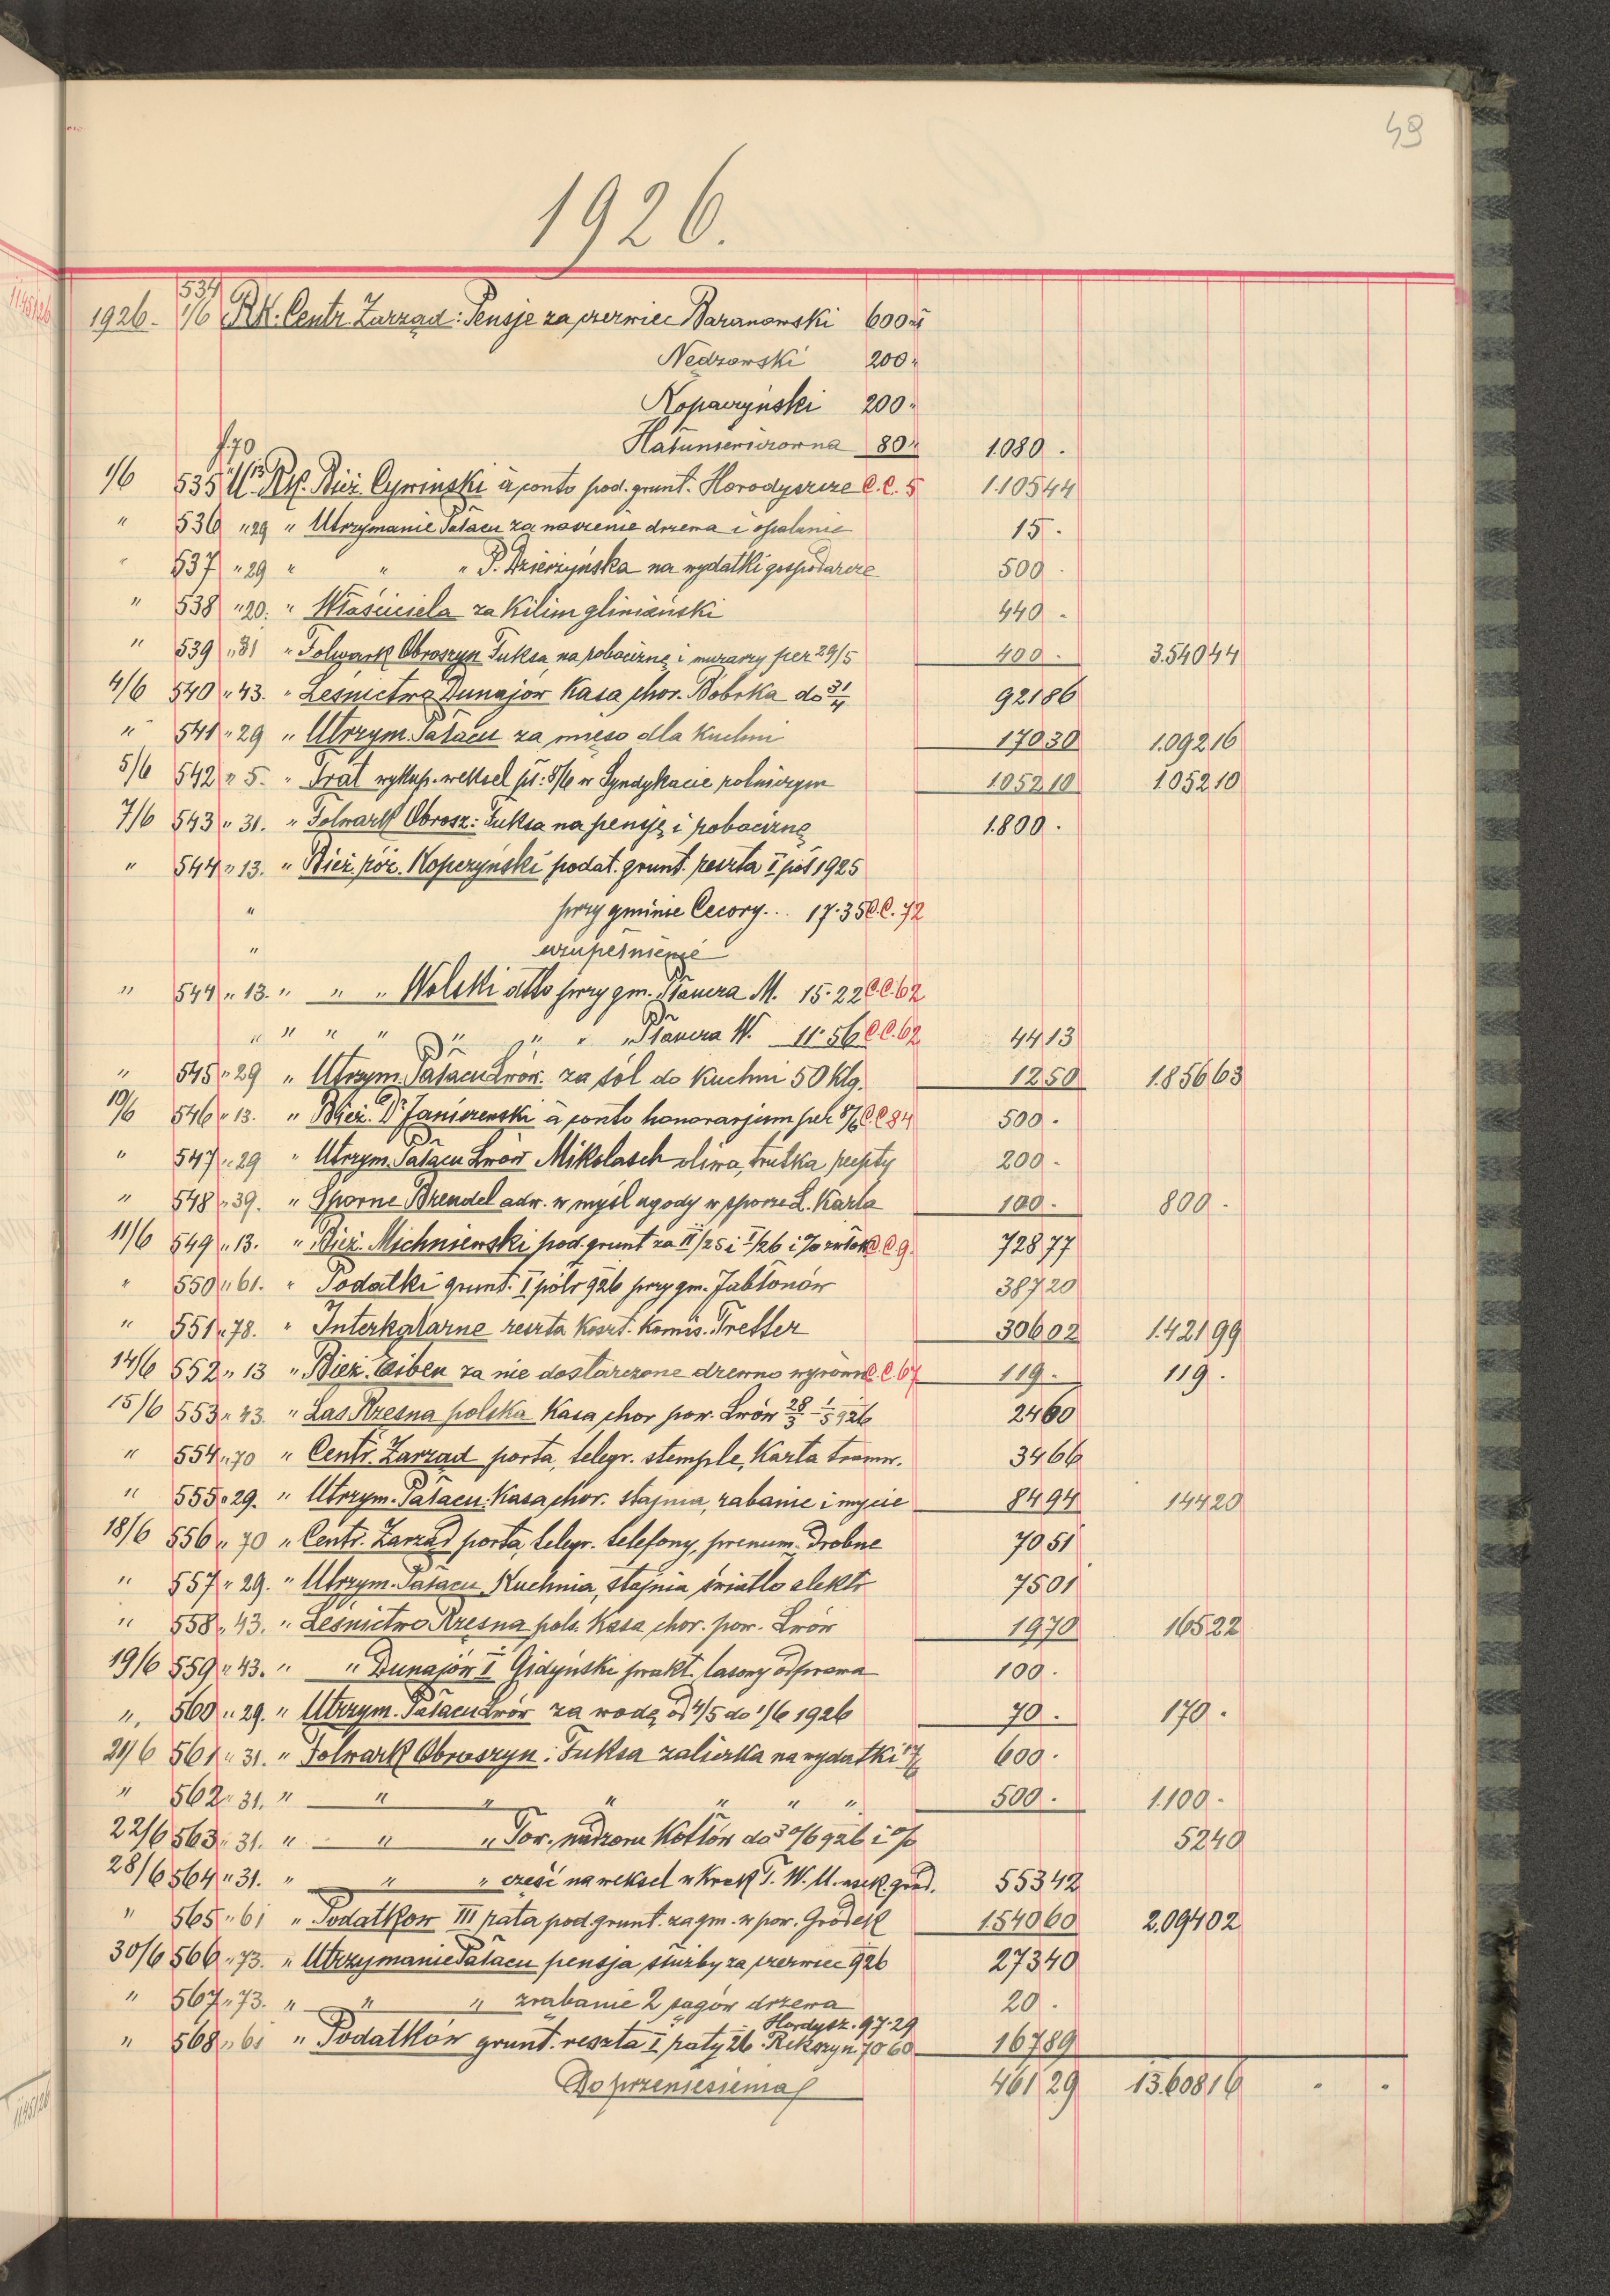 49
1926.
1926. 534 1/6 Rk. Centr. Zarząd: Pensje za czerwiec Baranowski 600 zł
Nedzowski 200 "
Kopaczyński 200 "
80 " 1.080 .
f. 70
1/6 535 " 13 Rk. Bież. Cywiński à conto pod. grunt. Horodyszcze C.C. 5 1.105 44
" 536 " 29 " Utrzymanie Pałacu za noszenie drzewa i opalanie 15 .
" 537 " 29 " " " P. Dzieżyńska na wydatki gospodarcze 500 .
" 538 " 20. " Właściciela za Kilim gliniański 440 .
" 539 " 31 " Folwark Obroszyn Fuksa na robociznę i murarzy per 29/5 400 . 3.540 44
4/6 540 " 43. " Leśnictwo Dunajów Kasa chor. Bóbrka do 31/4 921 86
" 541 " 29 " Utrzym. Pałacu za mięso dla Kuchni 170 30 1.092 16
5/6 542 " 5. " Trat wykup. weksel pł: 5/6 w Syndykacie rolniczym 1.052 10 1.052 10
7/6 543 " 31. " Folwark Obrosz: Fuksa na pensję i robociznę 1.800 .
" 544 " 13. " Bież. róż. Kopczyński podat. grunt. reszta I pół 1925
" przy gminie Cecory... 17.35 C.C. 72
" uzupełnienie
" 544 " 13. " " " Wolski dtto przy gm. Płaucza M. 15.22 C.C. 62
" " " " " " " " Płaucza W. 11.56 C.C. 62 44 13
" 545 " 29 " Utrzym. Pałacu Lwów. za sól do Kuchni 50 Klg. 12 50 1.856 63
10/6 546 " 13. " Bież. Dr Janiszewski à conto honorarjum per 8/6 C.C. 84 500 .
" 547 " 29 " Utrzym. Pałacu Lwów Mikolasch oliwa, trutka 200 .
" 548 " 39. " Sporne Brendel adw. w myśl ugody w sporze L. Karla 100 . 800 .
11/6 549 " 13. " Bież. Michniewski pod. grunt za II/25 i I/26 i % C.C. 9. 728 77
" 550 " 61. " Podatki grunt. I półr 926 przy gm. Jabłonów 387 20
" 551 " 78. " Interkalarne reszta Koszt. Komis. Tretter 306 02 1.421 99
14/6 552 " 13 " Bież. Eiben za nie dostarczone drewno C.C. 67 119 . 119 .
15/6 553 " 43. " Las Rzesna polska Kasa chor pow. Lwów 28/3 - 1/5 926 24 60
" 554 " 70 " Centr. Zarząd porta, telegr. stemple, Karta tramw. 34 66
" 555 " 29. " Utrzym. Pałacu. Kasa chor. stajnia, rabanie i mycie 84 94 144 20
18/6 556 " 70 " Centr. Zarząd porta, telegr. telefony, prenum. Drobne 70 51
" 557 " 29. " Utrzym. Pałacu Kuchnia, stajnia światło elektr 75 01
" 558 " 43. " Leśnictwo Rzesna pols. Kasa chor. pow. Lwów 19 70 165 22
19/6 559 " 43. " " Dunajów I Gidyński prakt. lasowy odprawa 100 .
" 560 " 29. " Utrzym. Pałacu Lwów za wodę od 4/5 do 1/6 1926 70 . 170 .
21/6 561 " 31. " Folwark Obroszyn: Fuksa zaliczka na wydatki 17/6 600 .
" 562 " 31. " " " " " " " 500 . 1.100 .
22/6 563 " 31. " " " Tow. nadzoru Kotłów do 30/6 926 i % 52 40
28/6 564 " 31. " " " część na weksel w Krak T. W. U. asek. grad. 553 42
" 565 " 61 " Podatkow III rata pod. grunt. za gm. w pow. Gródek 1.540 60 2.094 02
30/6 566 " 73. " Utrzymanie Pałacu pensja służby za czerwiec 926 273 40
" 567 " 73. " " " zrąbanie 2 sągów drzewa 20 .
Hordysz. 97.29
" 568 " 61 " Podatków grunt. reszta I raty 26. Rekszyn. 70 60 167 89
Do przeniesienia 461 29 13.608 16 . .